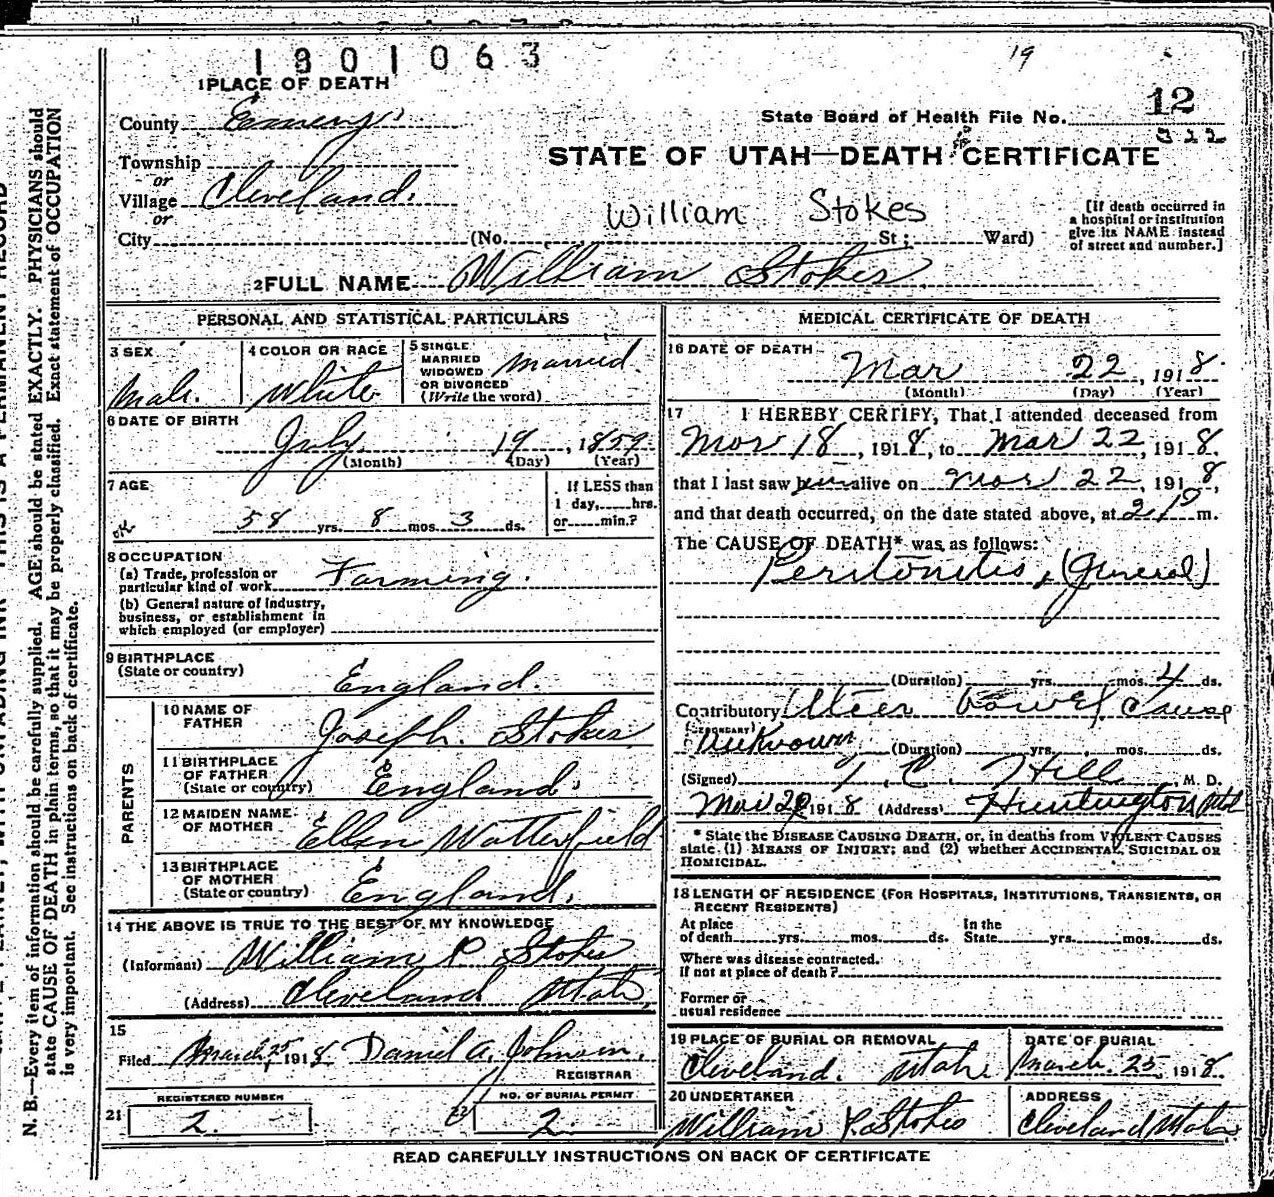 1301063
19
1 PLACE OF DEATH
County Emery
State Board of Health File No. 12
322
STATE OF UTAH—DEATH CERTIFICATE
Township
or
Village Cleveland.
or
William Stokes
City (No. St; Ward)
[If death occurred in
a hospital or institution
give its NAME instead
of street and number.]
2 FULL NAME William Stokes
PERSONAL AND STATISTICAL PARTICULARS
3 SEX
Male.
4 COLOR OR RACE
White
5 SINGLE
MARRIED
WIDOWED
OR DIVORCED
(Write the word)
Married.
6 DATE OF BIRTH
July 19, 1859
(Month) (Day) (Year)
7 AGE
58 yrs. 8 mos. 3 ds.
If LESS than
1 day, hrs.
or min.?
8 OCCUPATION
(a) Trade, profession or
particular kind of work Farming.
(b) General nature of Industry,
business, or establishment in
which employed (or employer)
9 BIRTHPLACE
(State or country)
England.
PARENTS
10 NAME OF
FATHER
Joseph. Stokes
11 BIRTHPLACE
OF FATHER
(State or country)
England.
12 MAIDEN NAME
OF MOTHER
Ellen Watterfield
13 BIRTHPLACE
OF MOTHER
(State or country)
England.
14 THE ABOVE IS TRUE TO THE BEST OF MY KNOWLEDGE
(Informant) William P. Stokes
(Address) Cleveland Utah,
15
Filed March, 25 1918 Daniel A. Johnson.
REGISTRAR
21 REGISTERED NUMBER
2.
22 NO. OF BURIAL PERMIT
2.
MEDICAL CERTIFICATE OF DEATH
16 DATE OF DEATH
Mar 22, 1918.
(Month) (Day) (Year)
17 I HEREBY CERTIFY, That I attended deceased from
Mar 18, 1918, to Mar 22, 1918.
that I last saw him alive on Mar 22, 1918,
and that death occurred, on the date stated above, at 2 P m.
The CAUSE OF DEATH* was as follows:
Peritonitis, (General)
(Duration) yrs. mos. 4 ds.
Contributory Ulcer Bowel Cause
(SECONDARY)
Unknown (Duration) yrs. mos. ds.
(Signed) T. C. Hill M. D.
Mar 29 1918 (Address) Huntington Utah
* State the DISEASE CAUSING DEATH, or, in deaths from VIOLENT CAUSES
state (1) MEANS OF INJURY; and (2) whether ACCIDENTAL, SUICIDAL OR
HOMICIDAL.
18 LENGTH OF RESIDENCE (FOR HOSPITALS, INSTITUTIONS, TRANSIENTS, OR
RECENT RESIDENTS)
At place
of death yrs. mos. ds.
In the
State yrs. mos. ds.
Where was disease contracted.
if not at place of death?
Former or
usual residence
19 PLACE OF BURIAL OR REMOVAL
Cleveland. Utah.
DATE OF BURIAL
March. 25, 1918.
20 UNDERTAKER
William P. Stokes
ADDRESS
Cleveland Utah
READ CAREFULLY INSTRUCTIONS ON BACK OF CERTIFICATE
N. B.—Every item of information should be carefully supplied. AGE should be stated EXACTLY. PHYSICIANS should
state CAUSE OF DEATH in plain terms, so that it may be properly classified. Exact statement of OCCUPATION
is very important. See instructions on back of certificate.